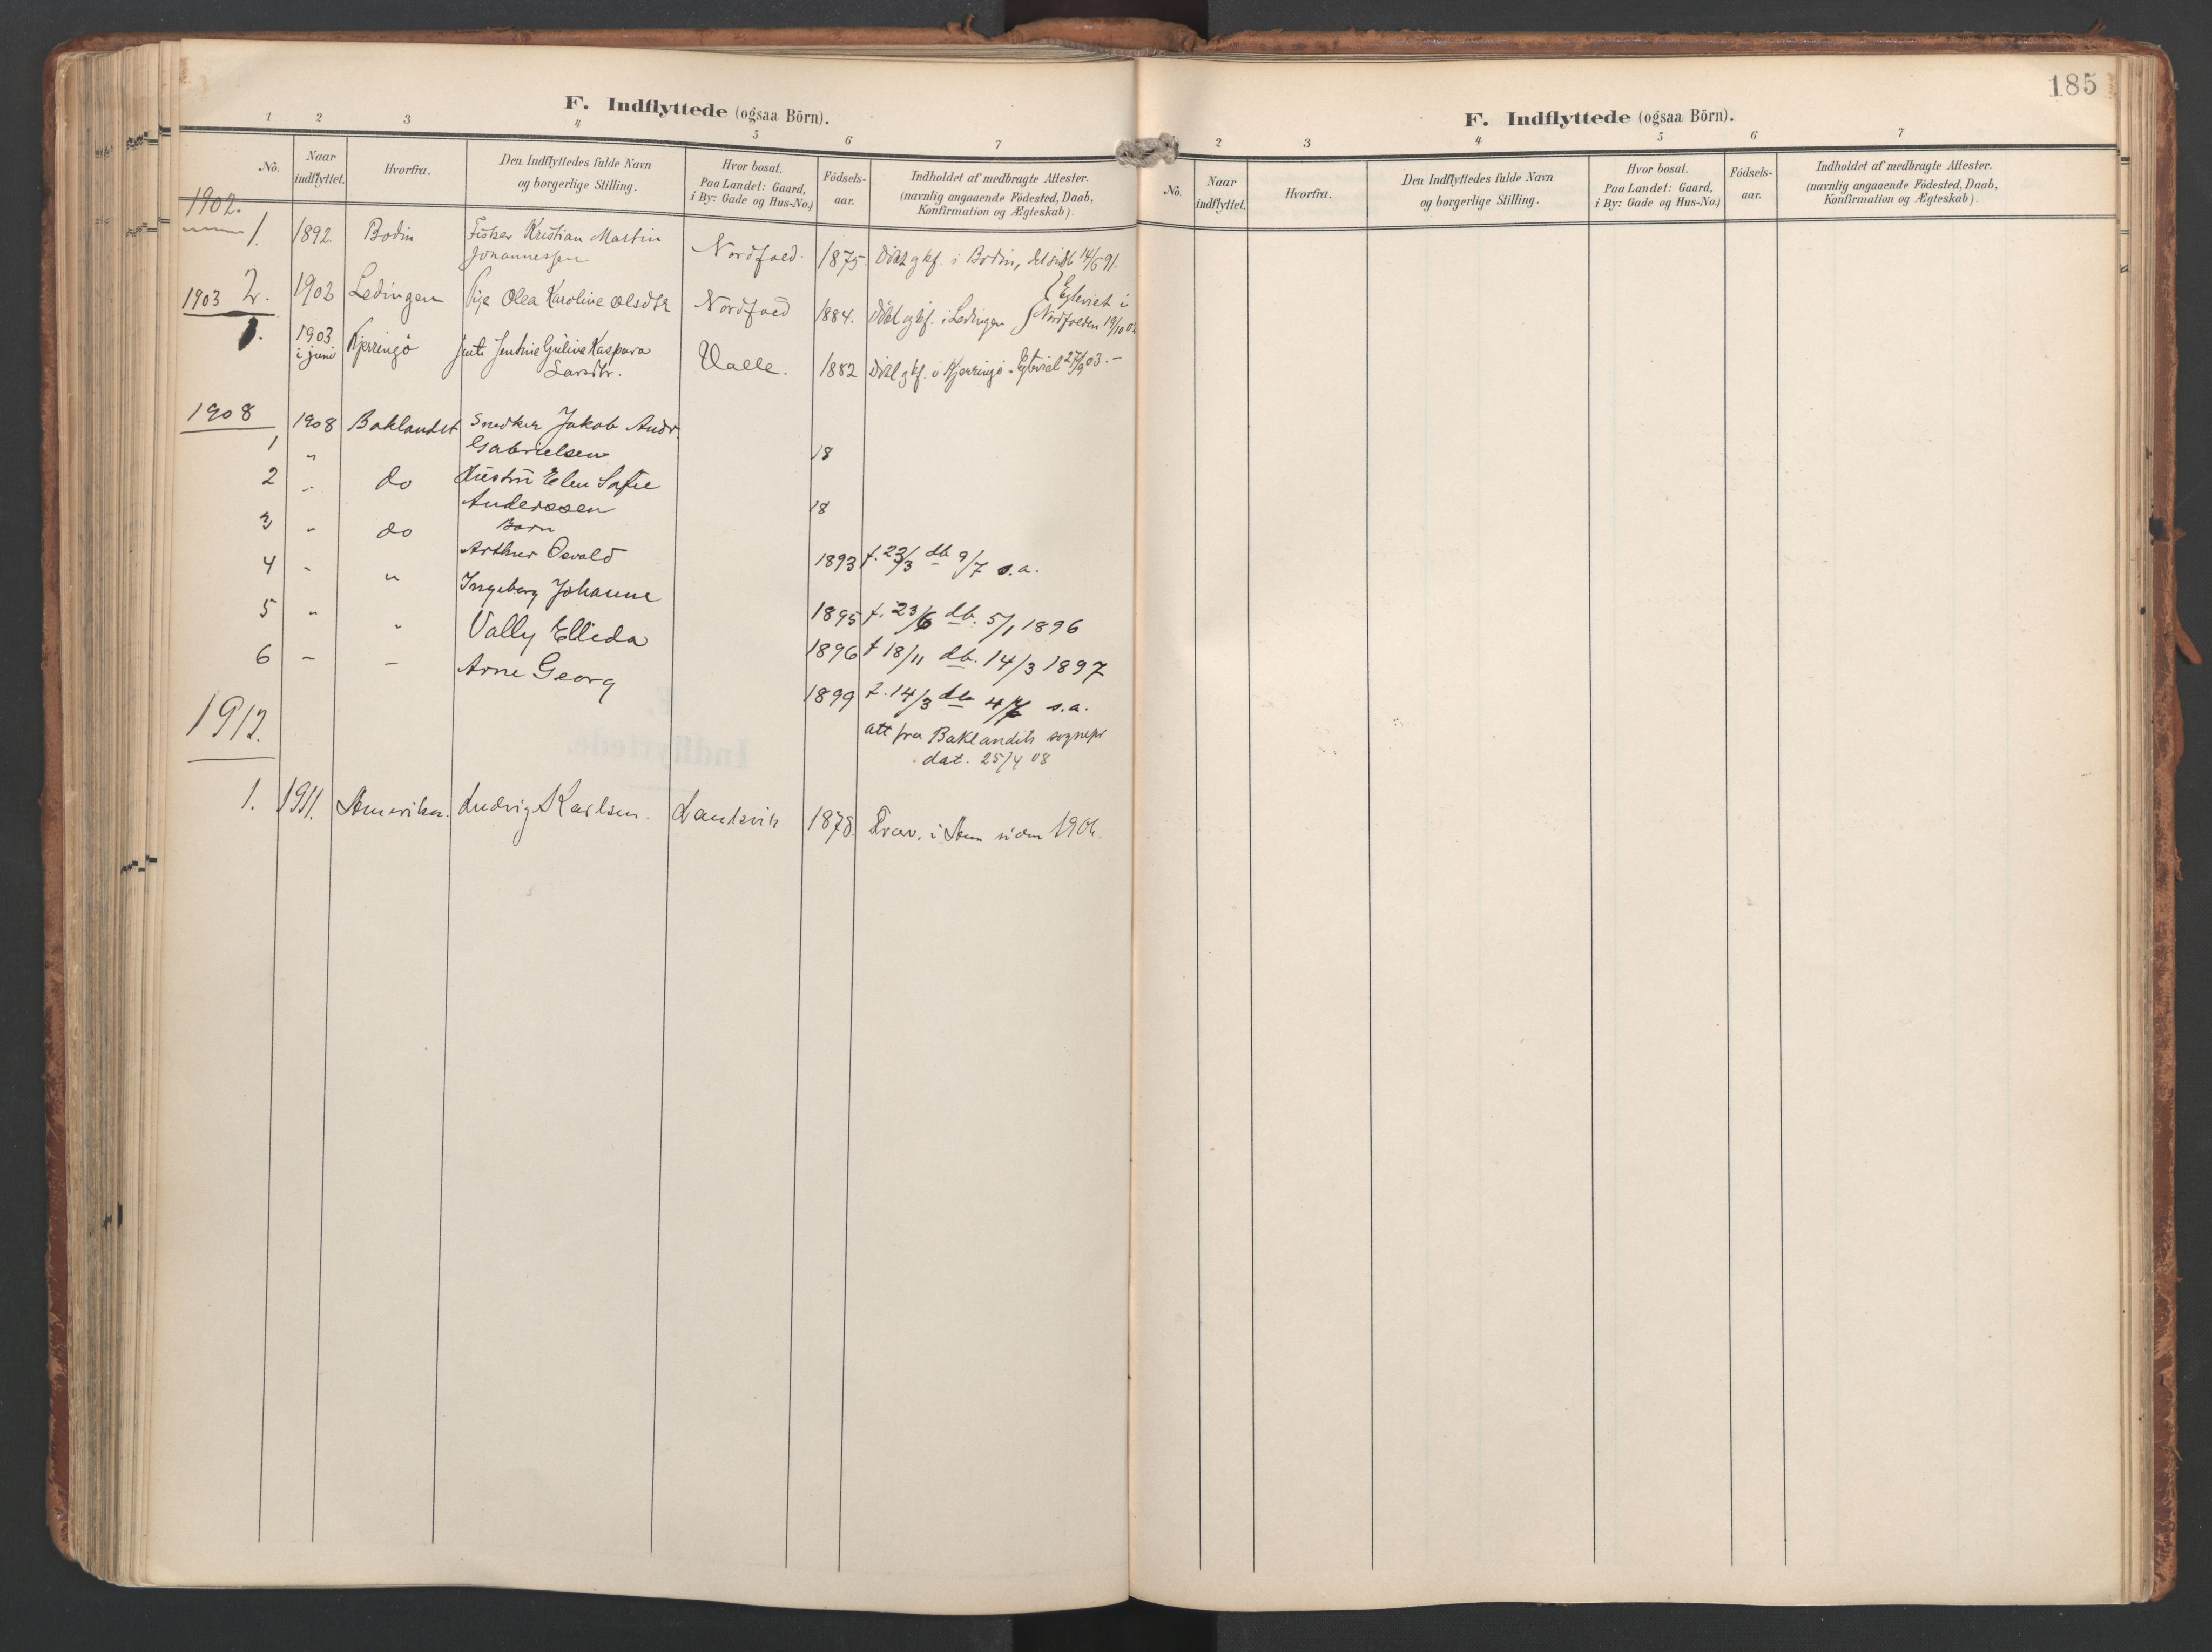 F. Indflyttede (ogsaa Börn).
1 2 3 4 5 6 7
No. Naar indflyttet. Hvorfra. Den Indflyttedes fulde Navn og borgerlige Stilling. Hvor bosat. Paa Landet: Gaard, i By: Gade og Hus-No.) Födsels-aar. Indholdet af medbragte Attester. (navnlig angaaende Födested, Daab, Konfirmation og Ægteskab).
1902.
1. 1892. Bodin Fisker Kristian Martin Nordfold. 1875. Döbt og kf. i Bodin, 14/6 91.
Johannessen
2. 1902 Lødingen Pige Olea Karoline Olsdtr Nordfold 1884. Döbt og kf. i Lødingen Egteviet i
Nordfolden 19/10 02
1903
1. 1903 Kjerringö Jente Jentine Gjuline Kaspara Valle. 1882 Döbt og kf. i Kjerringö. Egteviet 27/9 03.-
i juni Larsdtr.
1908
1 1908 Baklandet Snedker Jakob Andr.
" Gabrielsen 18
2 " do Hustru Elen Sofie
Anderssen 18
3 " do Barn
Arthur Osvald 1893 f. 23/3 db 9/7 s.a.
4 " " Ingeborg Johanne 1895 f. 23/6 db. 5/1 1896
5 " " Vally Ellida 1896 f 18/11 db. 14/3 1897
6 - - Arne Georg 1899 f. 14/3 db 4/6 s.a.
att fra Baklandets sognepr
dat. 25/4 08
1912.
1. 1911. Amerika. Ludvig Karlsen. 1878. i Am siden 1906.
185
F. Indflyttede (ogsaa Börn).
2 3 4 5 6 7
No. Naar indflyttet. Hvorfra. Den Indflyttedes fulde Navn og borgerlige Stilling. Hvor bosat. Paa Landet: Gaard, i By: Gade og Hus-No.) Födsels-aar. Indholdet af medbragte Attester. (navnlig angaaende Födested, Daab, Konfirmation og Ægteskab).